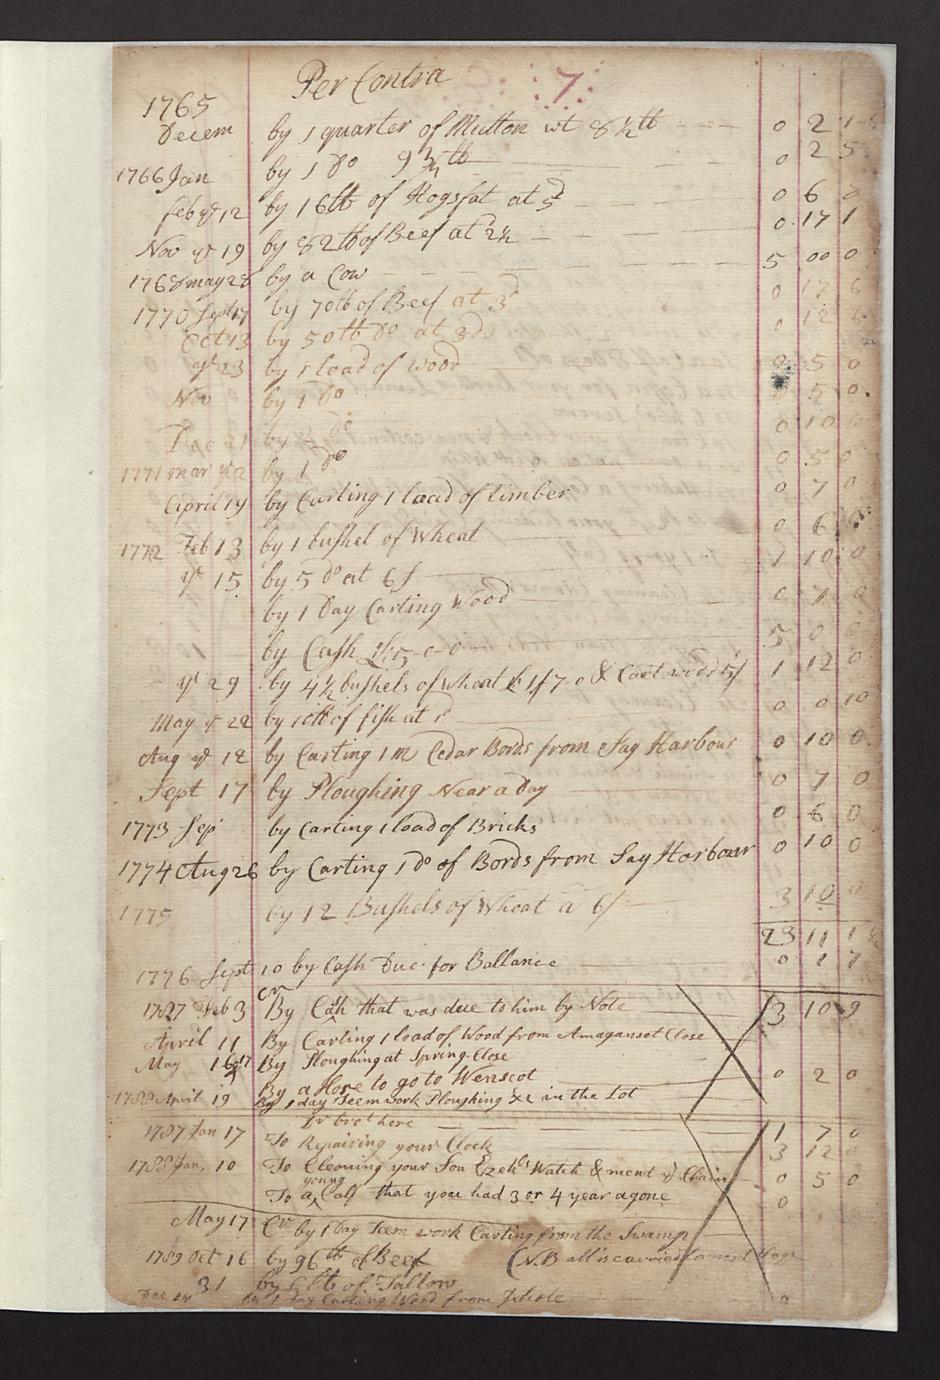 Per Contra 7
1765
Decem by 1 quarter of Mutton wt 8½ lb 0 2 1
1766 Jan by 1 Do 9¾ lb 0 2 5
feb ye 12 by 16 lb of Hogsfat at 5d 0 6
Nov ye 19 by 82 lb of Beef at 2½ 0 17 1
1768 may 28 by a Cow 5 00 0
1770 Sept 17 by 70 lb of Beef at 3d 0 17 6
Oct 13 by 50 lb Do at 3d 0 12 6
ye 23 by 1 load of Wood 0 5 0
Nov by 1 Do 0 5 0
Dec 21 by 2 do 0 10
1771 mar ye 2 by 1 do 0 5 0
April 19 by Carting 1 load of timber 0 7 0
1772 Feb 13 by 1 bushel of Wheat 0 6 0
ye 15 by 5 do at 6s 1 10 0
by 1 Day Carting Wood 0 7 0
by Cash 5-0-0 5 0 0
ye 29 by 4½ bushels of wheat £1 7 0 & Cart wood 5/ 1 12 0
May ye 22 by 10 lb of fish at 1d 0 0 10
Aug ye 12 by Carting 1 m Cedar Bords from Sag Harbour 0 10 0
Sept 17 by Ploughing Near a Day 0 7 0
1773 Sep by Carting 1 load of Bricks 0 6 0
1774 Aug 26 by Carting 1 do of Bords from Sag Harbour 0 10 0
1775 by 12 Bushels of Wheat a 6/ 3 12 0
23 11 1½
1776 Sept 10 by Cash Due for Ballance 0 1 7
Cr
1787 Feb 3 By Cash that was due to him by Note 3 10 9
April 11 By Carting 1 load of Wood from Amaganset Close
May 16 & 17 By Ploughing at Spring-Close
By a Horse to go to Wenscot 0 2 0
1788 April 19 By 1 day Teem work Ploughing &c in the Lot
Dr brot here
1787 Jan 17 To Repairing your Clock 1 7 0
3 12 0
1788 Jan, 10 To Cleaning your Son Ezekls Watch & mend ye Chain 0 5 0
To a young Calf that you had 3 or 4 year agone 0
May 17 Cr by 1 Day Teem work Carting from the Swamp
1789 Oct 16 by 96 lb of Beef (N.B all is carried
31 by 6 lb of Tallow
Dec by 1 Day Carting Wood from